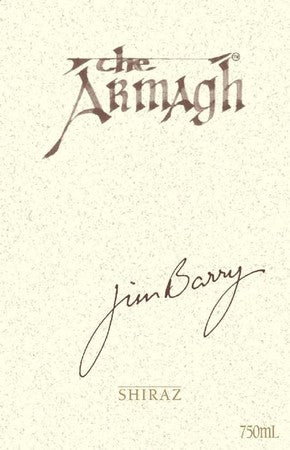 the
ARMAGh
Jim Barry
SHIRAZ
750mL